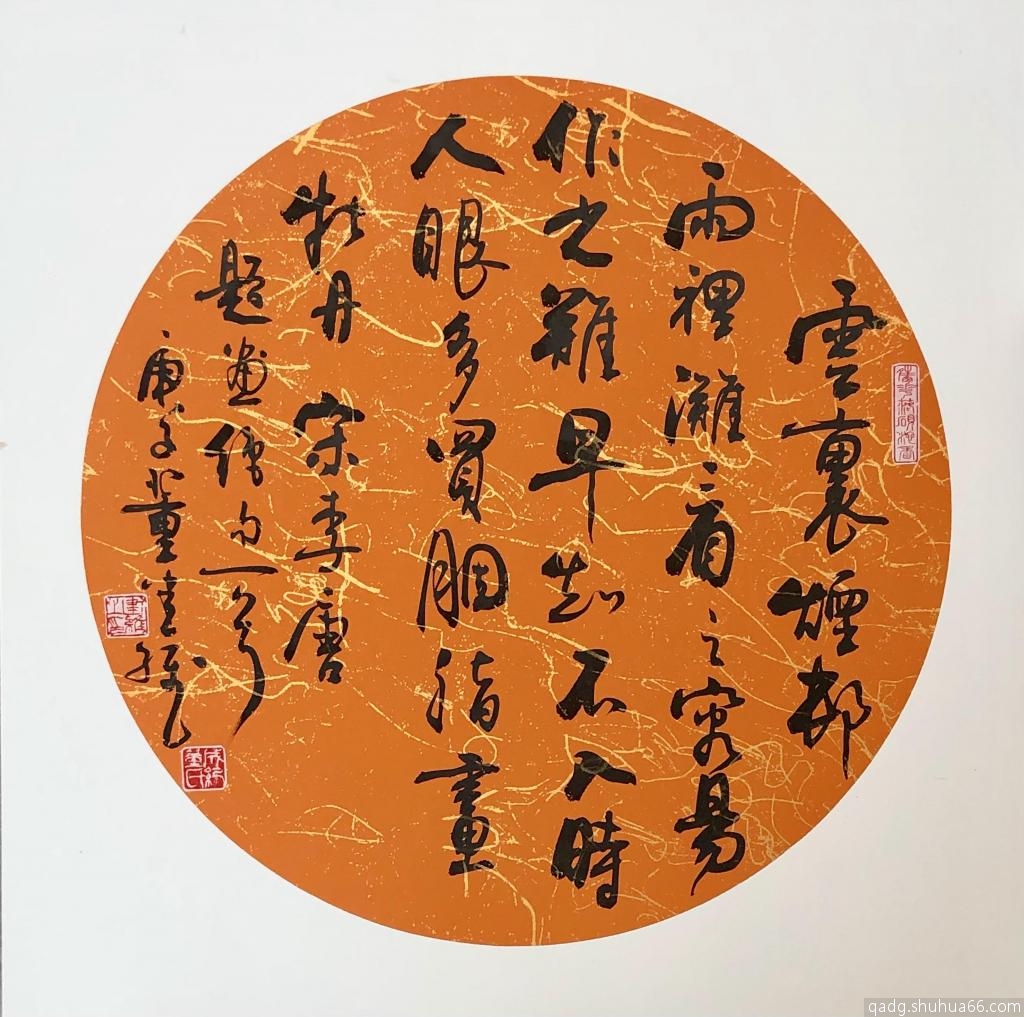 雲裏煙邨
雨裡灘看之容易
作之難早知不入時
人眼多買胭脂畫
牡丹 宋李唐
題畫絕句一首
庚子 董書
董氏
qadg.shuhua66.com